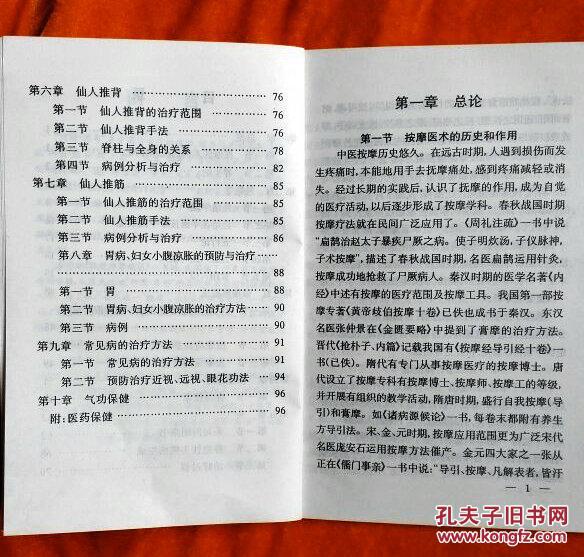 第六章 仙人推背 …………………… 76
第一节 仙人推背的治疗范围 …………… 76
第二节 仙人推背手法 …………………… 76
第三节 脊柱与全身的关系 ……………… 78
第四节 病例分析与治疗 ………………… 82
第七章 仙人推筋 …………………… 85
第一节 仙人推筋的治疗范围 …………… 85
第二节 仙人推筋手法 …………………… 85
第三节 病例分析与治疗 ………………… 86
第八章 胃病、妇女小腹凉胀的预防与治疗 ……
…………………………………… 88
第一节 胃 ……………………………… 88
第二节 胃病、妇女小腹凉胀的治疗方法 … 90
第三节 病例 …………………………… 90
第九章 常见病的治疗方法 ……………… 91
第一节 常见病的治疗方法 ……………… 91
第二节 预防治疗近视、远视、眼花功法 … 94
第十章 气功保健 …………………… 96
附:医药保健 …………………………… 96
第一章 总论
第一节 按摩医术的历史和作用
中医按摩历史悠久。在远古时期,人遇到损伤而发
生疼痛时,本能地用手去抚摩痛处,感到疼痛减轻或消
失。经过长期的实践后,认识了抚摩的作用,成为自觉
的医疗活动,以后逐步形成了按摩学科。春秋战国时期
按摩疗法就在民间广泛应用了。《周礼注疏》一书中说
"扁鹊治赵太子暴疾尸厥之病。使子明炊汤,子仪脉神,
子术按摩",描述了春秋战国时期,名医扁鹊运用针灸、
按摩成功地抢救了尸厥病人。秦汉时期的医学名著《内
经》中述有按摩的医疗范围及按摩工具。我国第一部按
摩专著《黄帝歧伯按摩十卷》已佚也成书于秦汉。东汉
名医张仲景在《金匮要略》中提到了膏摩的治疗方法。
晋代《抢朴子、内篇》记载我国有《按摩经导引经十卷》一
书(已佚)。隋代有专门从事按摩医疗的按摩博士。唐
代设立了按摩专科有按摩博士、按摩师、按摩工的等级,
并开展有组织的教学活动,隋唐时期,盛行自我按摩(导
引)和膏摩。如《诸病源候论》一书,每卷末都附有养生
方导引法。宋、金、元时期,按摩应用范围更为广泛宋代
名医庞安石运用按摩方法催产。金元四大家之一张从
正在《儒门事亲》一书中说:"导引、按摩、凡解表者,皆汗
— 1 —
孔夫子旧书网